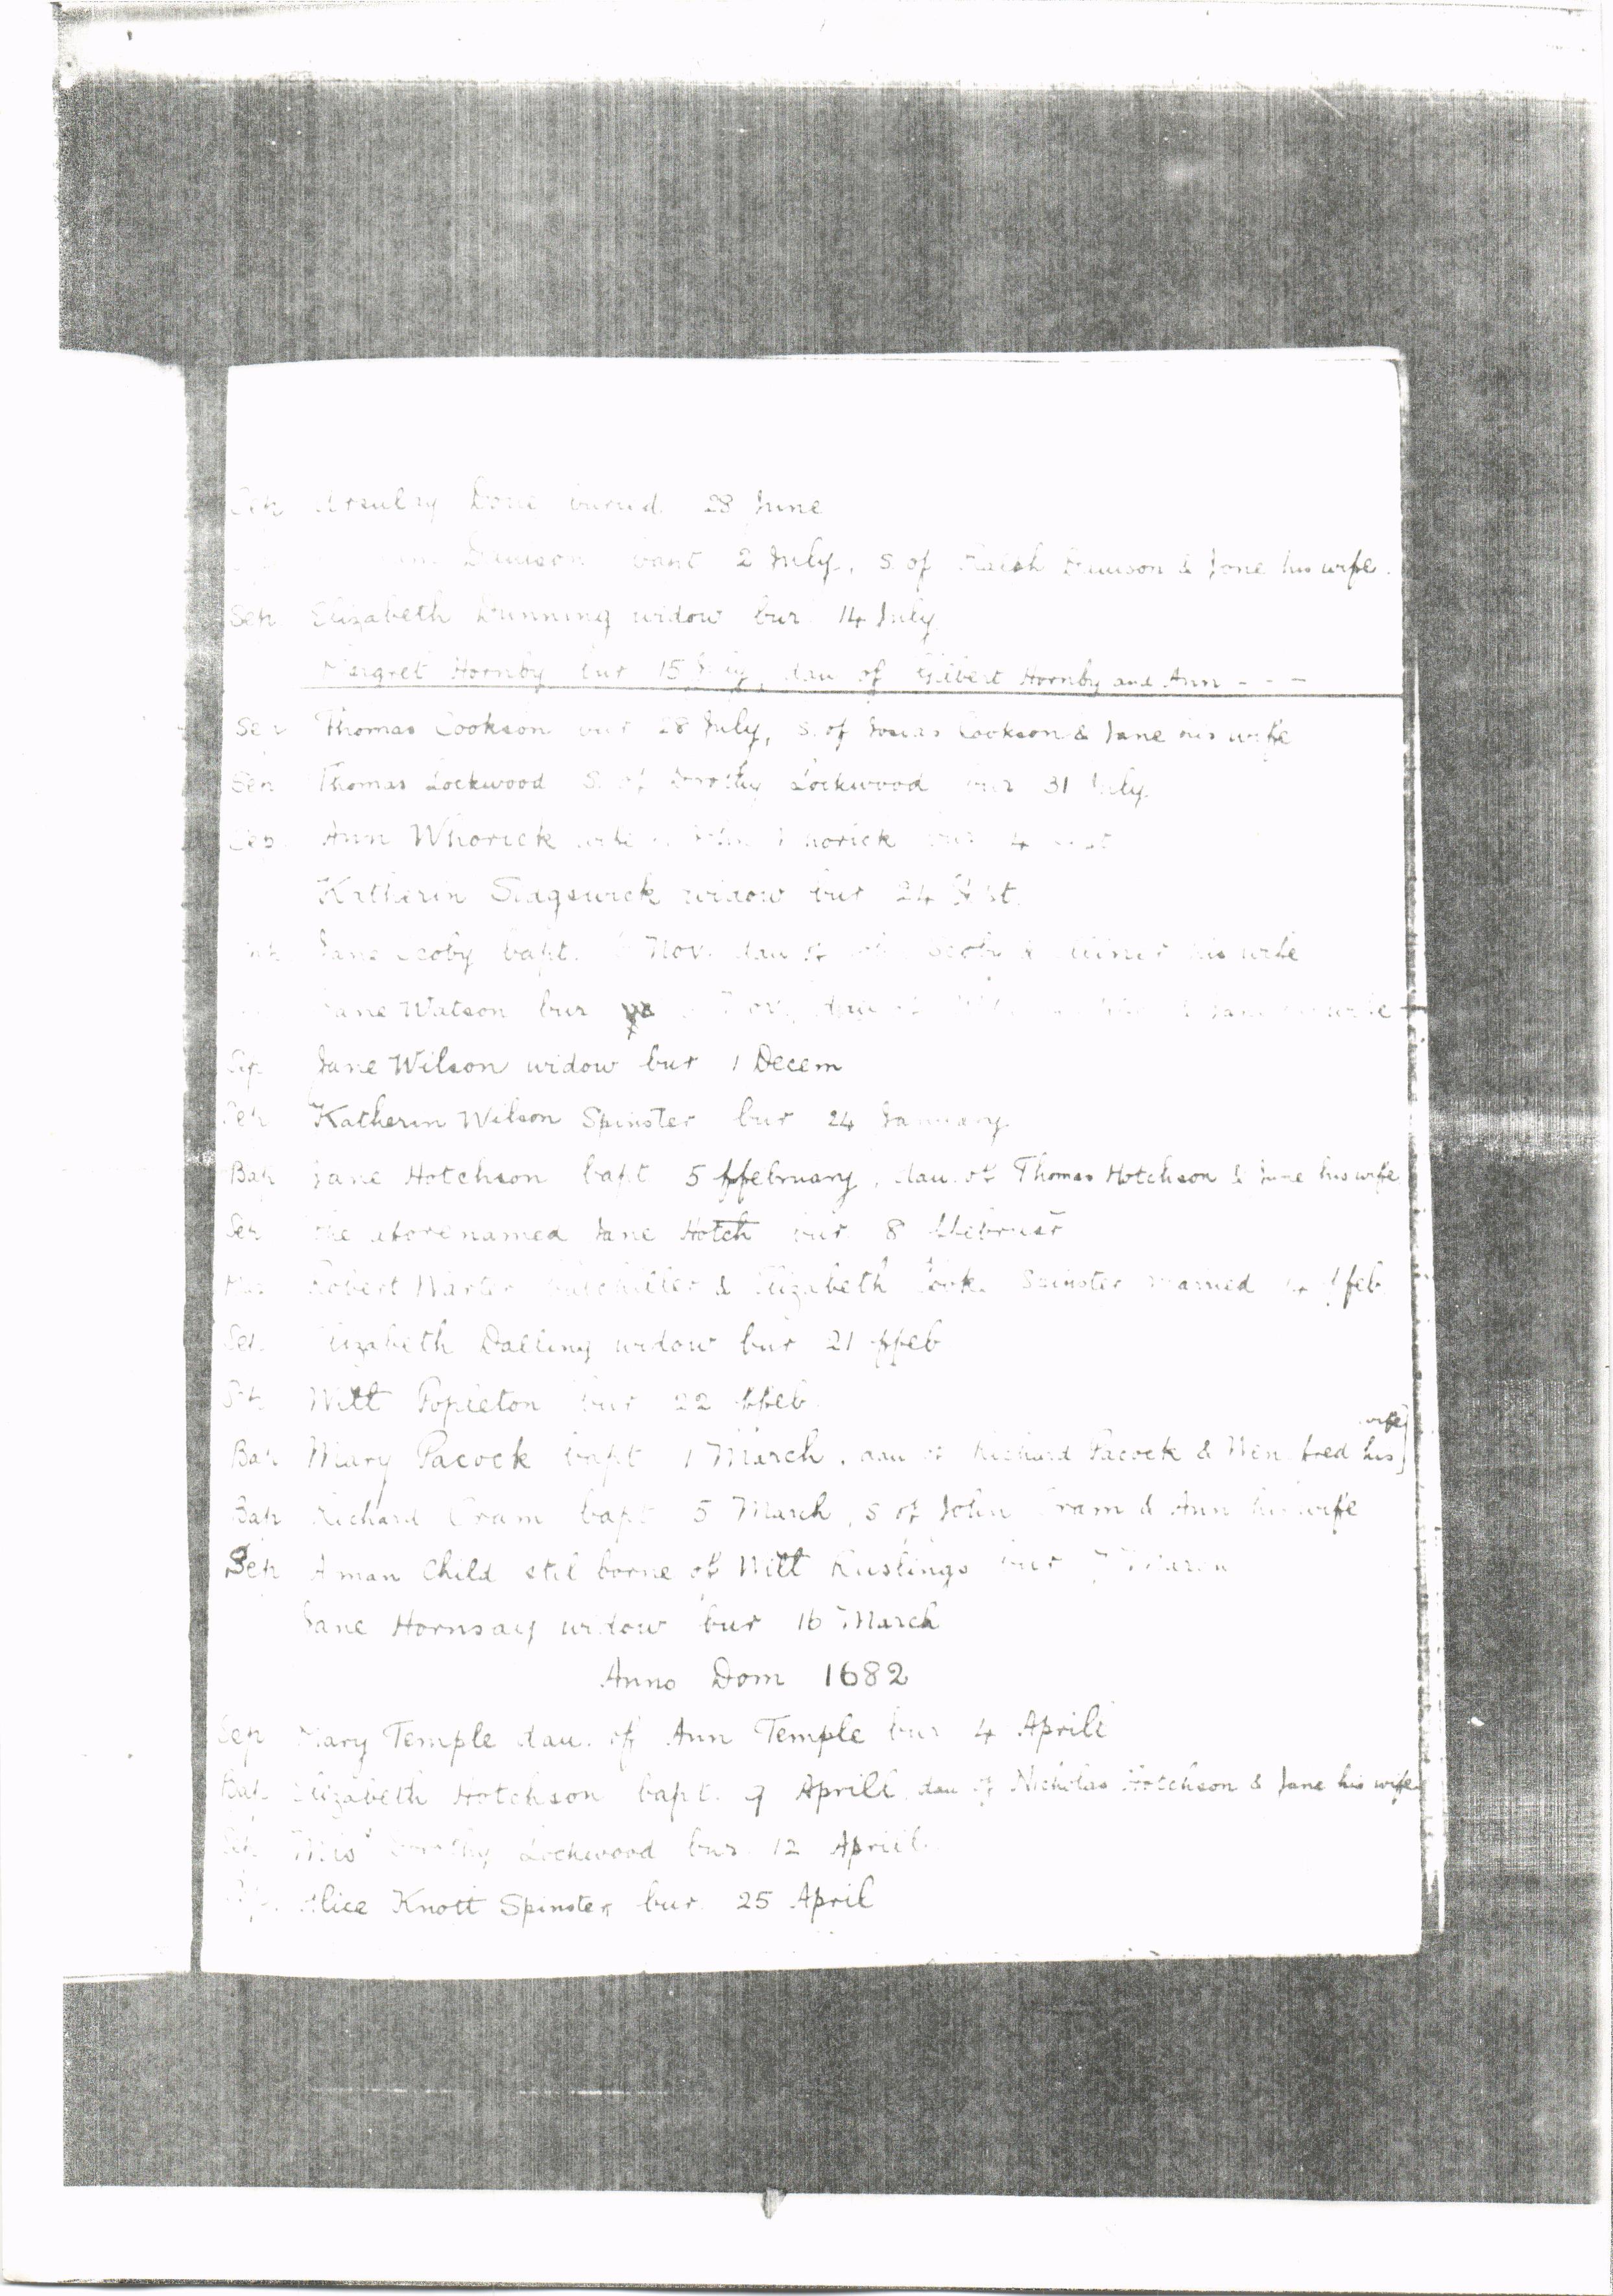 Sep Ursulay Done buried 28 June
Dawson bapt 2 July, s. of Ralph Dawson & Jane his wife.
Sep Elizabeth Dunning widow bur 14 July
Margret Hornby bur 15 July, dau of Gilbert Hornby and Ann - - -
Sep Thomas Cookson bur 28 July, s. of Josias Cookson & Jane his wife
Sep Thomas Lockwood s. of Dorothy Lockwood bur 31 July
Sep Ann Whorick wife Whorick bur 4
Katherin Sidgswick widow bur 24
Jane Scoby bapt. Nov. dau of Scoby & his wife
Jane Watson bur dau of & Jane his wife
Sep Jane Wilson widow bur 1 Decem
Sep Katherin Wilson Spinster bur 24 January
Bap Jane Hotchson bapt 5 ffebruary, dau. of Thomas Hotchson & Jane his wife
Sep The abovenamed Jane Hotch bur 8 ffebruar
Mar Robert & Elizabeth Cook Spinster married ffeb
Sep Elizabeth Dalling widow bur 21 ffeb
Sep Will Popleton bur 22 ffeb
Bap Mary Pacock bapt 1 March, dau of Richard Pacock & Winifred his wife]
Bap Richard Cram bapt 5 March, s of John Cram & Ann his wife
Sep A man Child stil borne of Will Ruslings bur 7 March
Jane Hornsay widow bur 16 March
Anno Dom 1682
Sep Mary Temple dau. of Ann Temple bur 4 Aprill
Bap Elizabeth Hotchson bapt. 9 Aprill dau of Nicholas Hotchson & Jane his wife
Sep Mis Dorothy Lockwood bur. 12 Aprill.
Alice Knott Spinster bur. 25 April